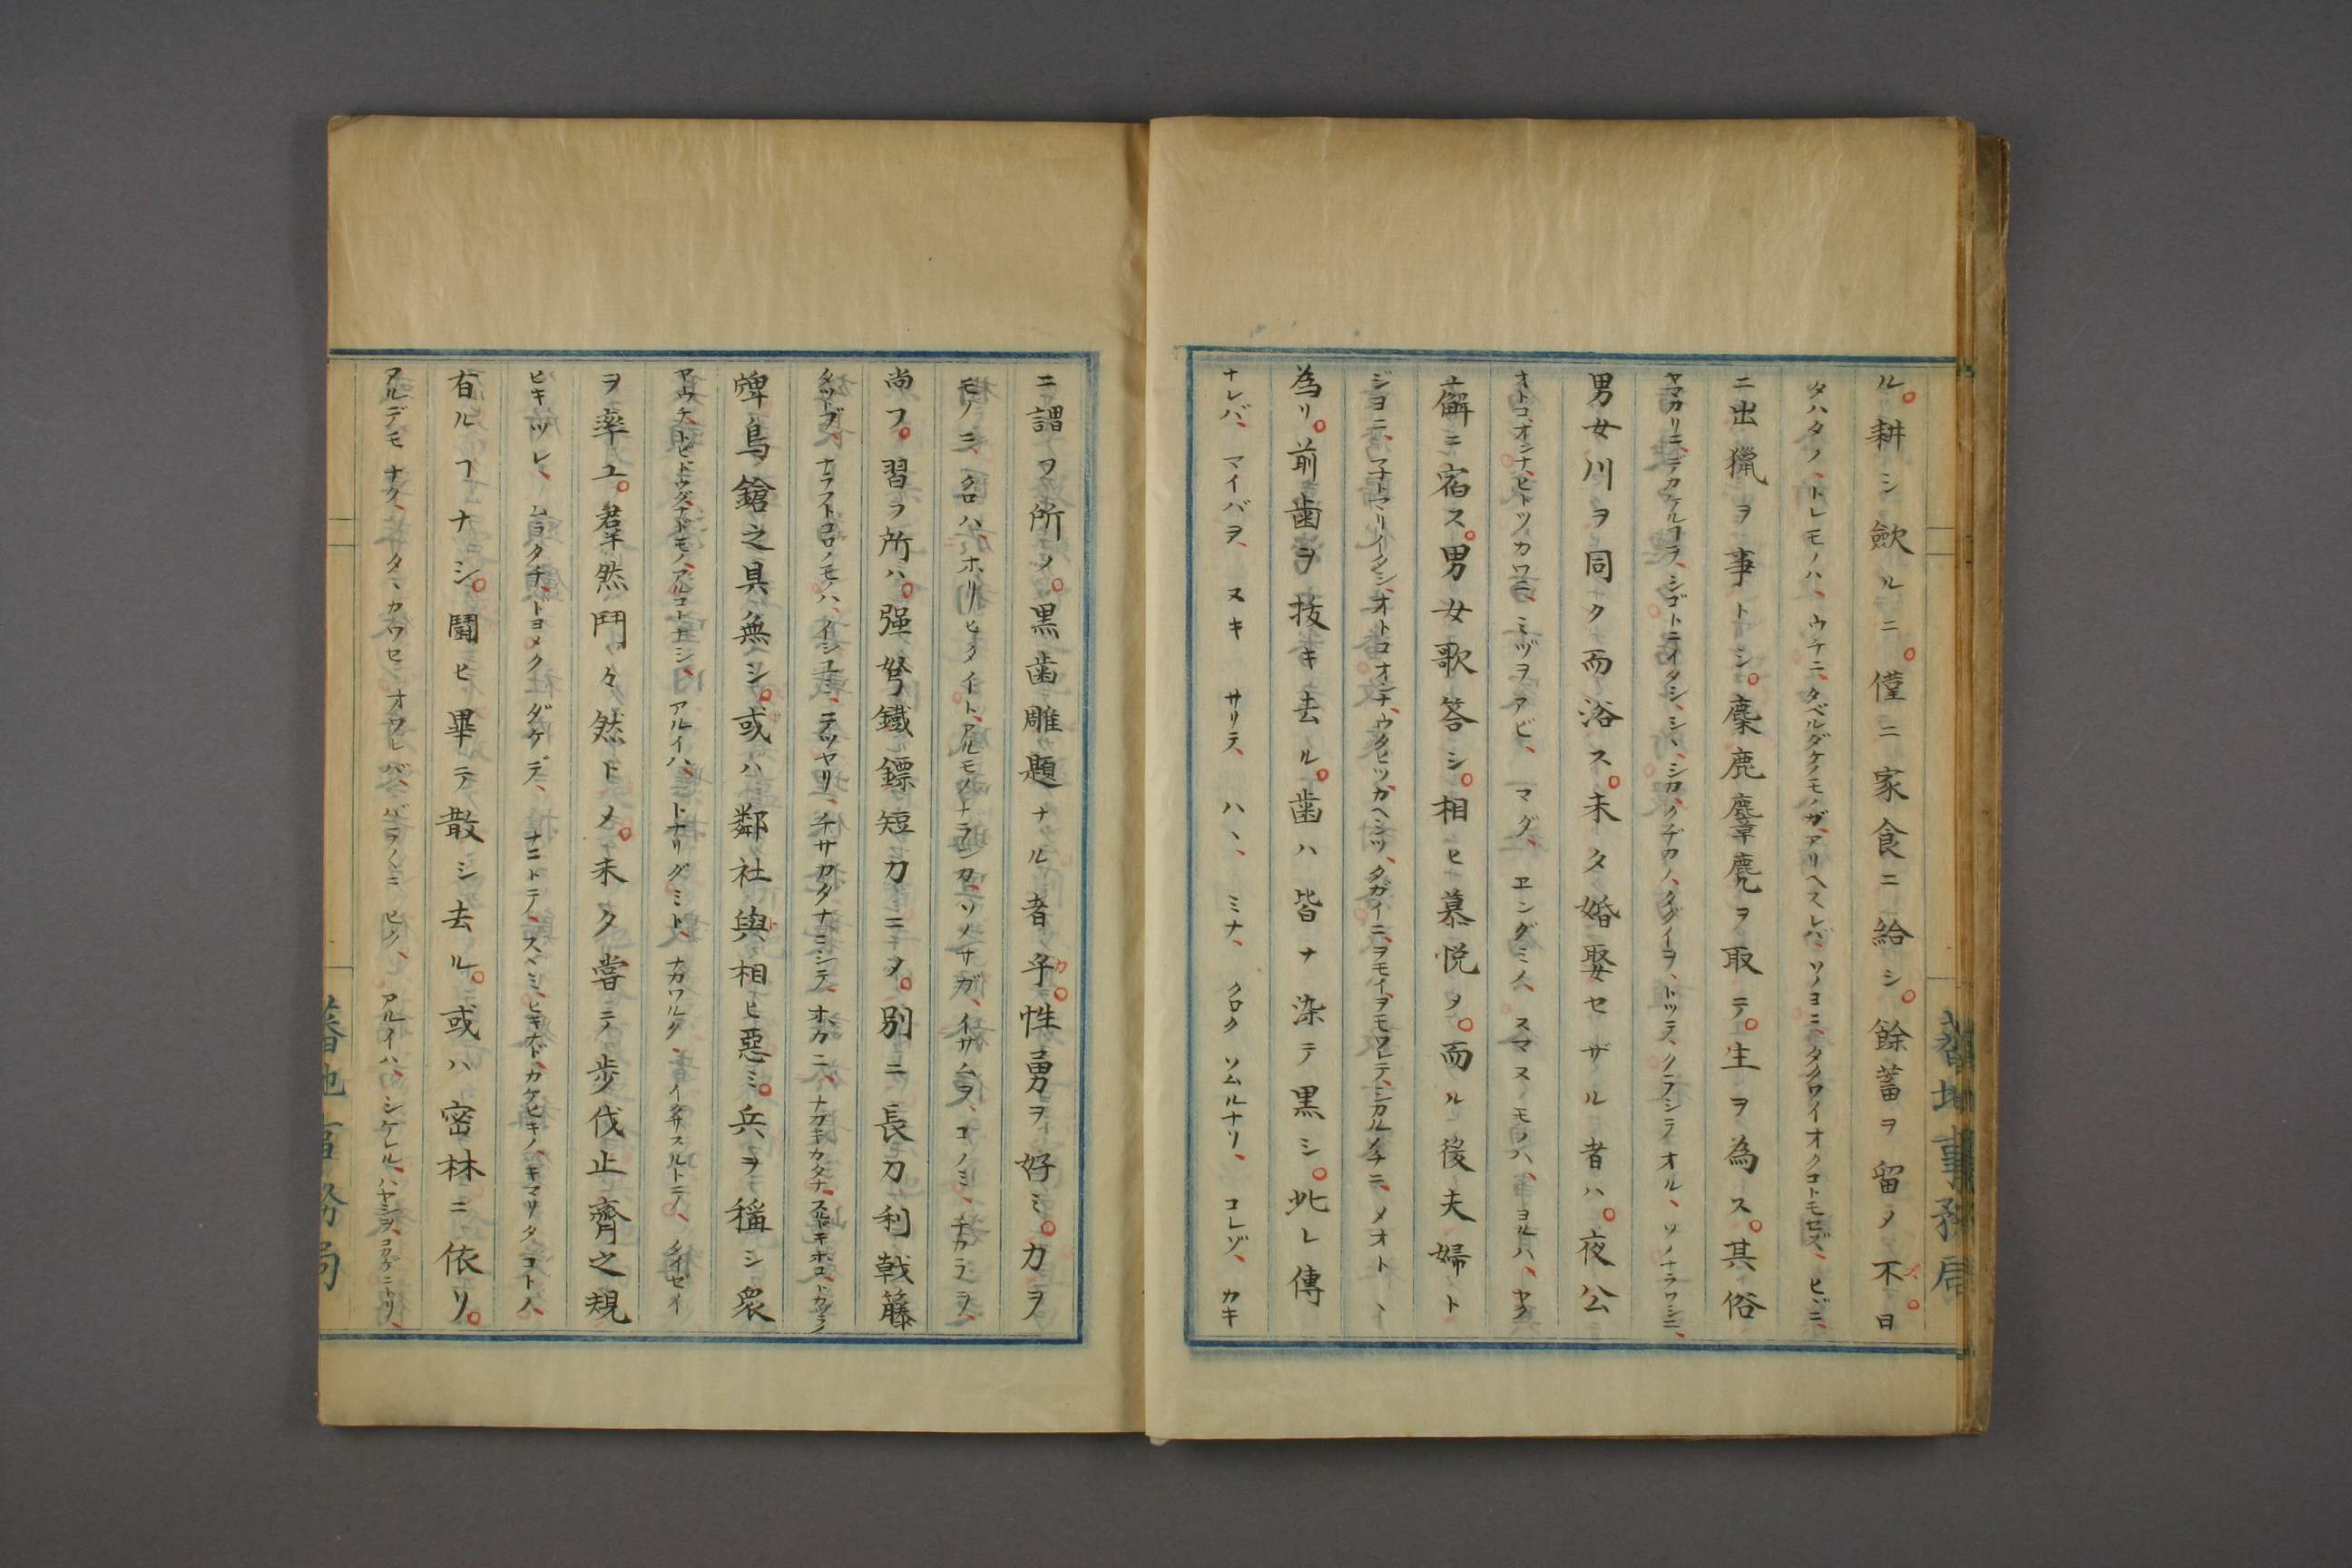 ル。耕シ歛ルニ。僅ニ家食ニ給シ。餘蓄ヲ留メ不。日
タハタノ、トレモノハ、ウチニ、タベルダケノモノガ、アリヘスレバ、ソノヨニ、タクワイオクコトモセズ、ヒヾニ、
ニ出獵ヲ事トシ。麋鹿麞麂ヲ取テ。生ヲ為ス。其俗
ヤマカリニ、デカケルヿヲ、シゴトニイタシ、シヽ、シカ、クヂカノ、タグイヲ、トツテ、クラシテオル、ソノナラワシニ、
男女川ヲ同ク而浴ス。未タ婚娶セザル者ハ。夜公
オトコ、オンナ、ヒトツカワニ、ミヅヲアビ、マダ、ヱングミノ、スマヌモノハ、ヨルハ、ヤク
ニ宿ス。男女歌答シ。相ヒ慕悦メ。而ル後夫婦ト
ジヨニ、マチトマリイタシ、オトコオンナ、ウタヒツ、カヘシツ、タガイニ、ヲモイ、ヲモワレテ、シカルノチニ、メオトヽ
為リ。前歯ヲ抜キ去ル。歯ハ皆ナ染テ黒シ。此レ傳
ナレバ、マイバヲ、ヌキサリテ、ハヽ、ミナ、クロクソムルナリ、コレゾ、カキ
ニ謂フ所ノ。黒歯雕題ナル者乎。性勇ヲ好ミ。力ヲ
モノニ、クロハ、ホリヒタイト、アルモノナランカ、ソノサガ、イサムヲ、コノミ、チカラヲ、
尚フ。習ラ所ハ。强弩鐵鏢短刀ニメ。別ニ長刀利戟籐
タツトブ、ナラフトコロノモノハ、イシユミ、テツヤリ、チサカタナニシテ、ホカニ、ナガキカタナ、スルドキホコ、トカヅラノ
牌鳥鎗之具無シ。或ハ鄰社與相ヒ惡ミ。兵ヲ稱シ衆
ヤウチ、トビドウグナドモノ、アルコトナシ、アルイハ、トナリグミト、ナカワルク、イクサスルトテノ、タイゼイ
ヲ率ユ。羣然鬥々然トメ。未タ嘗テ歩伐止齊之規
ヒキツレ、ムラタチ、ドヨメクダケデ、ナニトテノ、スヽミ、ヒキナド、カケヒキノ、キマリタコトハ、
有ルヿナシ。鬪ヒ畢テ散シ去ル。或ハ密林ニ依リ。
アルデモナク、タヽカウセ、オワレバ、バラ〱ニヒク、アルイハ、シケレル、ハヤシヲ、コカゲニトリ、
蕃地事務局
蕃地事務局